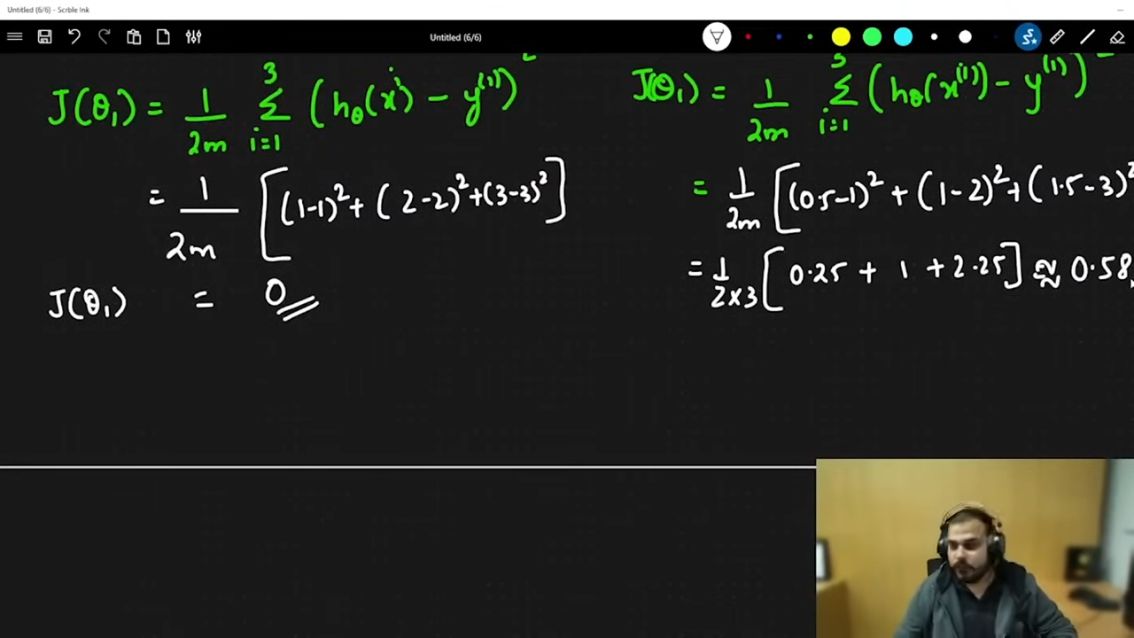 Untitled (6/6) - Scrble Ink
Untitled (6/6)
J(θ₁) = 1/2m Σ i=1 3 (hθ(xⁱ) - y⁽ⁱ⁾)²
= 1/2m [(1-1)² + (2-2)² + (3-3)²]
J(θ₁) = 0
J(θ₁) = 1/2m Σ i=1 3 (hθ(x⁽ⁱ⁾) - y⁽ⁱ⁾)
= 1/2m [(0.5-1)² + (1-2)² + (1.5-3)²
= 1/2×3 [0.25 + 1 + 2.25] ≈ 0.58